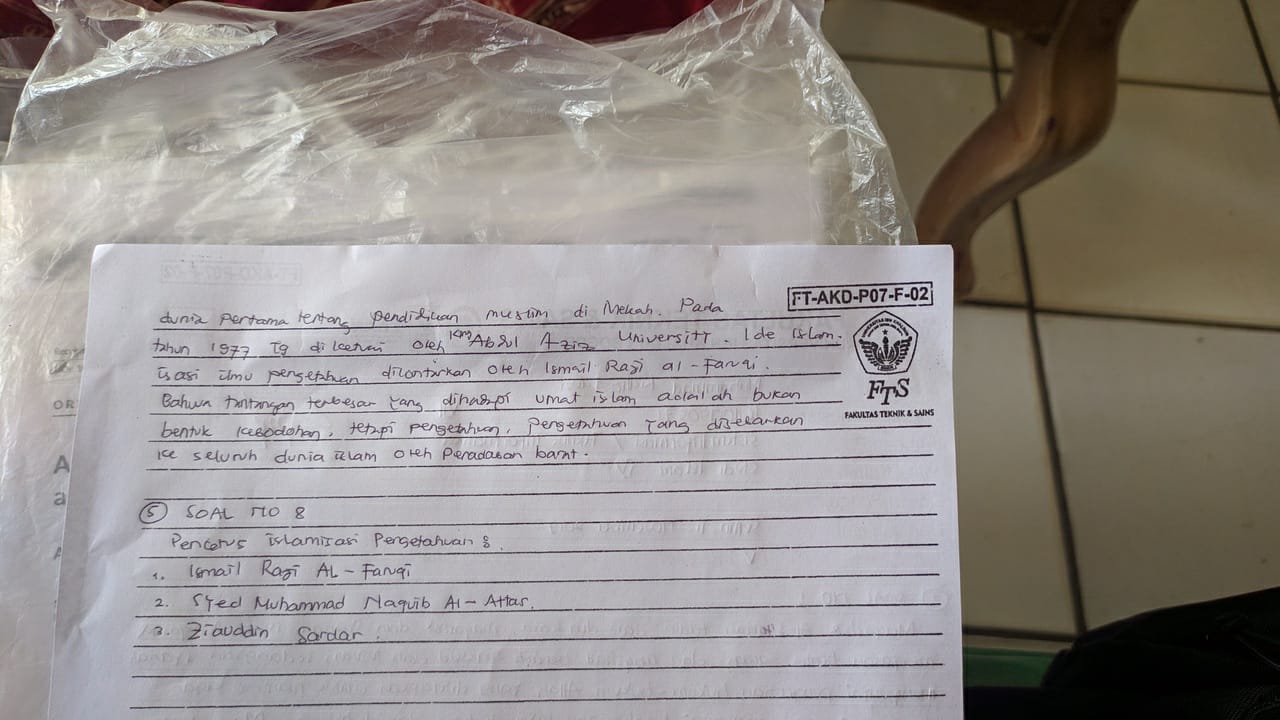 FT-AKD-P07-F-02
dunia Pertama tentang pendidikan muslim di Mekah. Pada
tahun 1977 yg di ketuai oleh King Abdul Aziz University. Ide Islam-
isasi ilmu pengetahuan dilontarkan oleh Ismail Razi al-Faruqi.
Bahwa tantangan terbesar yang dihadapi umat islam adalah bukan
bentuk kebodohan, tetapi pengetahuan, pengetahuan yang disebarkan
ke seluruh dunia islam oleh Peradaban barat.
FTS
FAKULTAS TEKNIK & SAINS
5 SOAL NO 8
Pencetus islamisasi Pengetahuan :
1. Ismail Razi AL-Faruqi
2. Syed Muhammad Naquib Al-Attas.
3. Ziauddin Sardar.